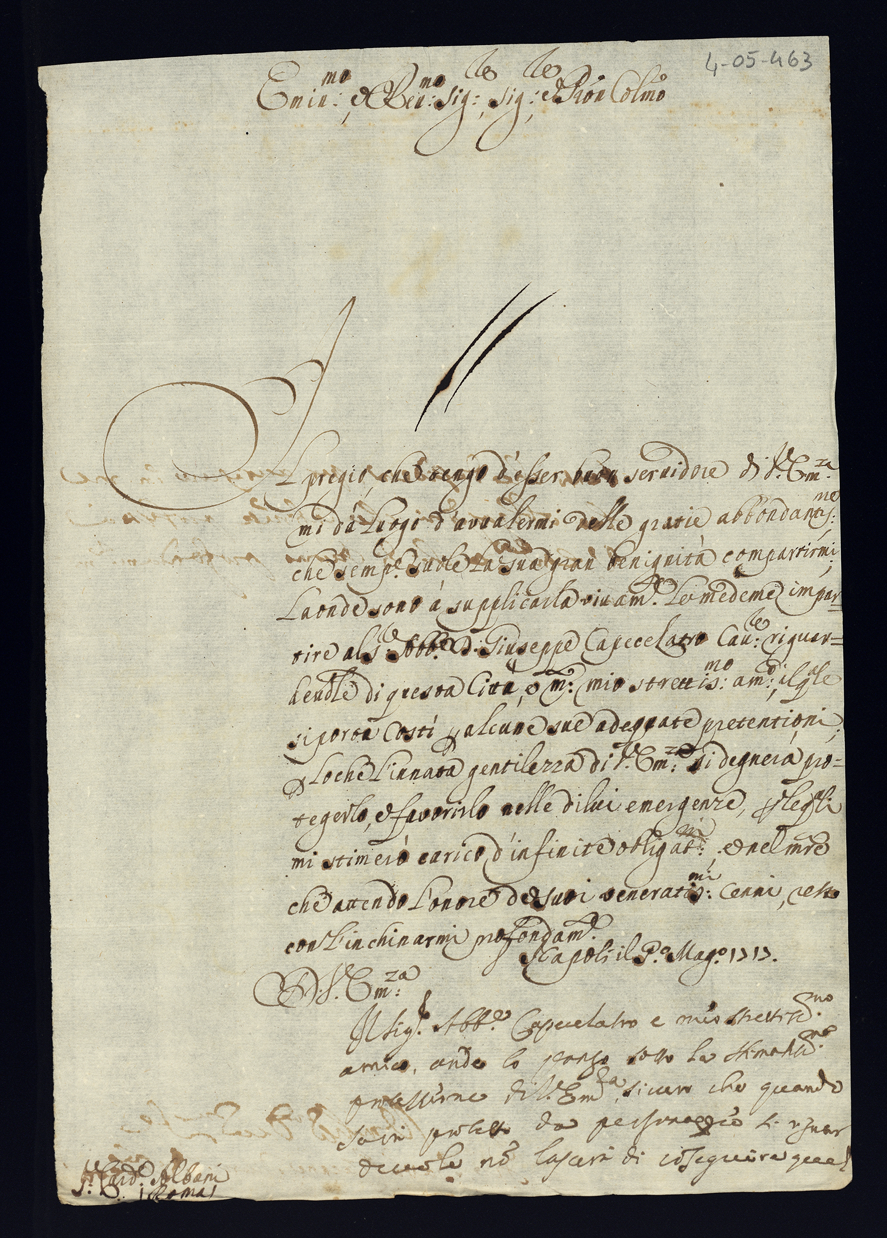 4-05-463
Emin:mo, e Reu:mo Sig:le, Sig:le, e Pron Colmo
Il pregio, che tengo d'esser buon seruidore di V. Em:za
mi dà luogo d'auualermi delle gratie abbondantis:me,
che semp.e suole la sua gran benignità compartirmi;
Laonde sono à supplicarla viuam.te Le medeme impar=
tire al S.r Abb.e D. Giuseppe Capecelatro Cau:re riguar=
deuole di questa Città, e m:o mio strettis:mo am:o, il q.ale
si porta costì p alcune sue adequate pretentioni,
p loche l'innata gentilezza di V. Em:za si degnerà pro=
tegerlo, e fauorirlo nelle di lui emergenze,
mi stimerò carico d'infinite obligat:ni, e nel mre
che attendo l'onore de suoi veneratis:mi cenni, resto
con l'inchinarmi profondam.te
Napoli il P.o Mag.o 1717.
D. V. Em:za
Il Sig.r Abb.e Capecelatro e mio strettiss.mo
amico, onde lo pongo sotto la stimatiss.ma
protettione di V. Em.za sicuro che quando
sarà protetto da personaggio sì riguar
deuole nō lascerà di cōseguire quel
S.r Card. Albani
(Roma)